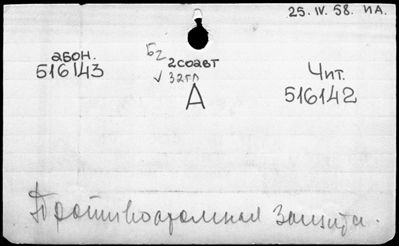 25. IV. 58. ИА.
абон.
516143
Б2
2соавт
√ 32гл
А
Чит.
516142
Противоатомная защита.